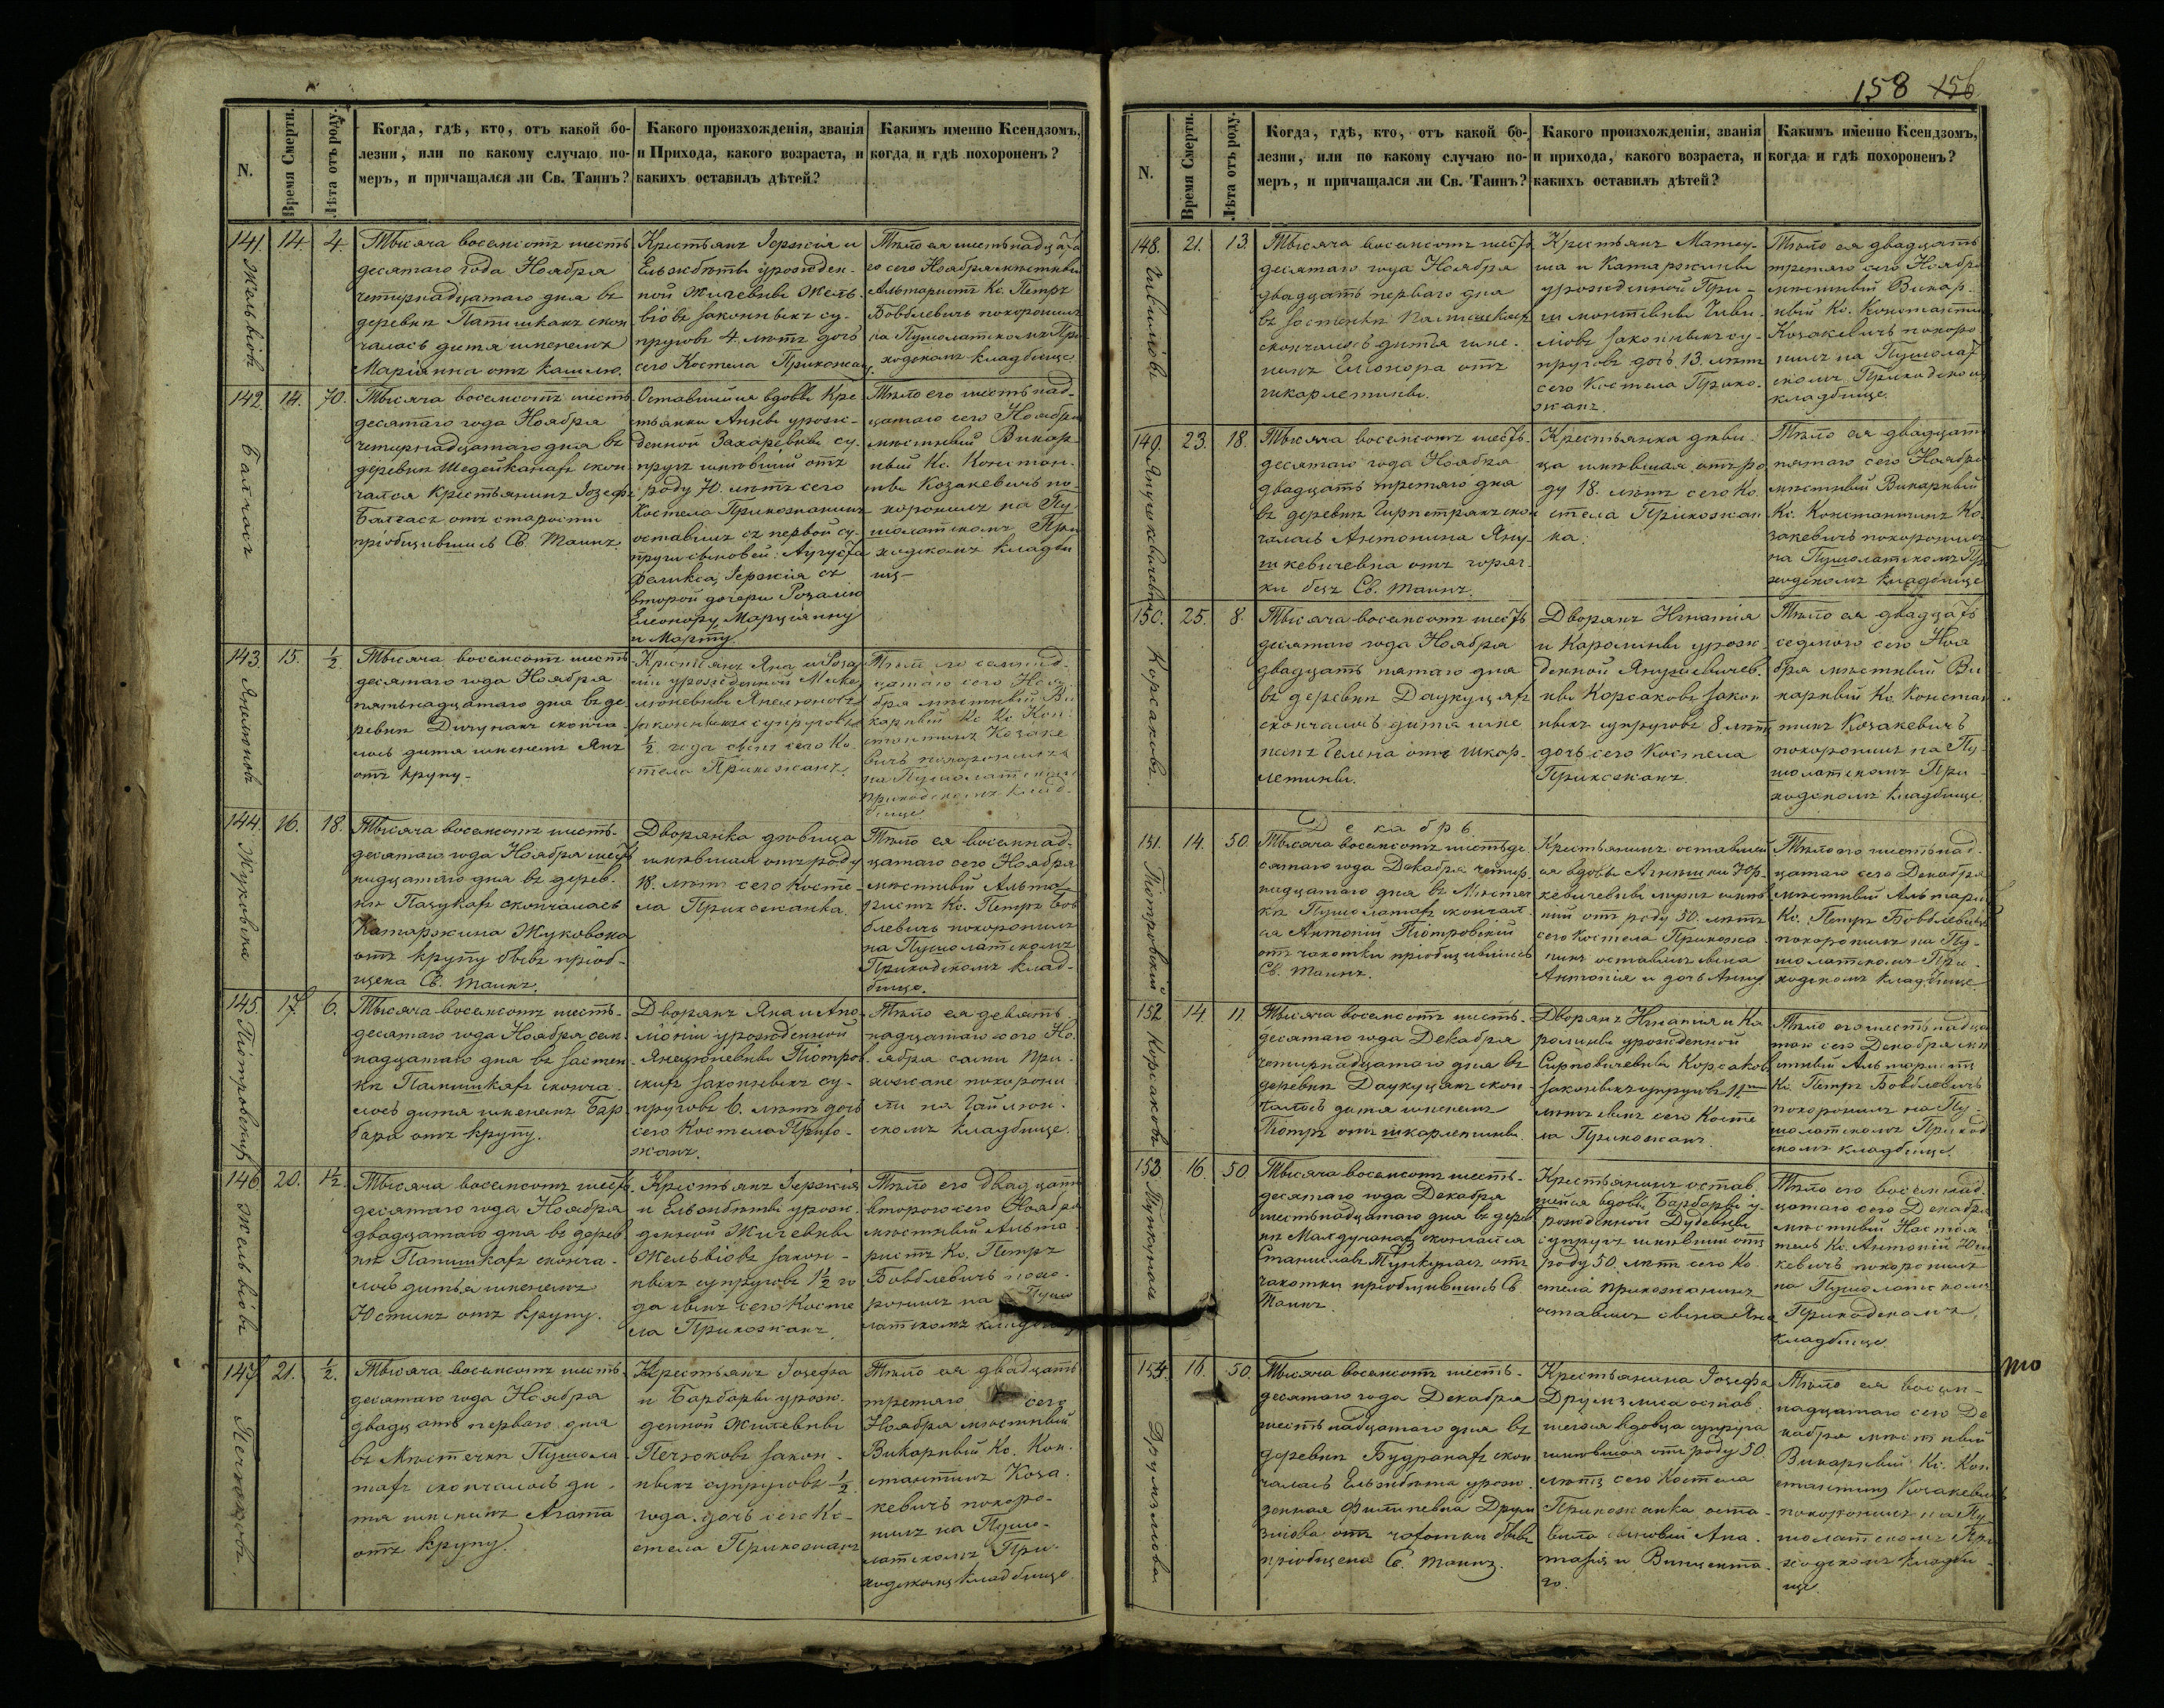 N.
Время Смерти.
Лѣта отъ роду.
Когда, гдѣ, кто, отъ какой бо-
лезни, или по какому случаю по-
меръ, и причащался ли Св. Таинъ?
Какого произхожденія, званія
и Прихода, какого возраста, и
какихъ оставилъ дѣтей?
Какимъ именно Ксендзомъ,
когда и гдѣ похороненъ?
141.
14.
4.
Тысяча восемсотъ шесть
десятаго года Ноября
четырнадцатаго дня въ
деревнѣ скон
чалась дитя именемъ
Маріанна отъ кашлю.
Крестьянъ Іержія и
Ельжбѣты урожден-
ной Жигевны Жель-
віовъ законныхъ су-
пруговъ 4. лѣтъ дочь
сего Костела Прихожан.
Тѣло ея шестьнадцата
го сего Ноября мѣстный
Альтаристъ Кс. Петръ
Бовблевичъ похоронилъ
на Пушолатскомъ При
ходскомъ кладбище.
142.
14.
70.
Балчасъ
Тысяча восемсотъ шесть
десятаго года Ноября
четырнадцатаго дня въ
деревнѣ скон
чался Крестьянинъ Іозефъ
Балчасъ отъ старости
пріобщившись Св. Таинъ.
Оставшійся вдовы Кре
стьянки Анны урож-
денной Захаревны су-
пругъ имѣвшій отъ
роду 70. лѣтъ сего
Костела Прихожанинъ
оставилъ съ первой су-
пруги сыновей: Августа
Феликса, Іержія съ
второй дочери Розалію
Елеонору, Марціянну
и Марту.
Тѣло его шестьнад-
цатаго сего Ноября
мѣстный Викар-
ный Кс. Констан-
тинъ Козакевичъ по-
хоронилъ на Пу-
шолатскомъ При
ходскомъ кладби
щѣ-
143.
15.
½
Тысяча восемсотъ шесть
десятаго года Ноября
пятьнадцатаго дня въ де
ревнѣ сконча
лось дитя именемъ Янъ
отъ крупу.
Крестьянъ Яна и Роза
ліи урожденной
законныхъ супруговъ
½ года сынъ сего Ко
стела Прихожанъ.
Тѣло его семнад-
цатаго сего Ноя
бря мѣстный Ви
карный Кс. Кон
стантинъ Козаке
вичъ похоронилъ
на Пушолатскомъ
приходскомъ клад-
бище
144.
16.
18.
Жуковска
Тысяча восемсотъ шесть-
десятаго года Ноября шесть
надцатаго дня въ дерев-
нѣ Пацукахъ скончалась
Катаржина Жуковска
отъ крупу бывъ пріоб-
щена Св. Таинъ.
Дворянка дѣвица
имѣвшая отъ роду
18. лѣтъ сего Косте-
ла Прихожанка.
Тѣло ея восемнад-
цатаго сего Ноября
мѣстный Альта
ристъ Кс. Петръ Бов
блевичъ похоронилъ
на Пушолатскомъ
Приходскомъ клад-
бище.
145.
17.
6.
Піотровскихъ
Тысяча восемсотъ шесть-
десятаго года Ноября сем-
надцатаго дня въ застен-
кѣ Папишкахъ сконча-
лось дитя именемъ Бар-
бара отъ крупу.
Дворянъ Яна и Апо-
лоніи урожденной
Піотров-
скихъ законныхъ су-
пруговъ 6. лѣтъ дочь
сего Костела Прихо-
жанъ.
Тѣло ея девять-
надцатаго сего Но-
ября сами При-
хожане похорони
ли на
скомъ кладбище.
146.
20.
1½.
Жельвіовъ
Тысяча восемсотъ шесть
десятаго года Ноября
двадцатаго дня въ дерев-
нѣ Папишкахъ сконча-
лось дитья именемъ
Юстинъ отъ крупу.
Крестьянъ Іержія
и Ельжбѣты урож-
денной Жигевны
Жельвіовъ закон-
ныхъ супруговъ 1½ го
да сынъ сего Косте
ла Прихожанъ.
Тѣло его двадцать
второго сего Ноября
мѣстный Альта-
ристъ Кс. Петръ
Бовблевичъ похо-
ронилъ на Пушо
латскомъ кладбище
147.
21.
½.
Тысяча восемсотъ шесть
десятаго года Ноября
двадцать перваго дня
въ Мѣстечкѣ Пушола
тахъ скончалось ди-
тя именемъ Агата
отъ крупу.
Крестьянъ Іозефа
и Барбары урож-
денной
закон-
ныхъ супруговъ ½
года дочь сего Ко-
стела Прихожанъ
Тѣло ея двадцать
третяго сего
Ноября мѣстный
Викарный Кс. Кон-
стантинъ Коза-
кевичъ похоро-
нилъ на Пушо-
латскомъ При-
ходскомъ кладбище
158 156
N.
Время Смерти.
Лѣта отъ роду.
Когда, гдѣ, кто, отъ какой бо-
лезни, или по какому случаю по-
меръ, и причащался ли Св. Таинъ?
Какого произхожденія, званія
и прихода, какого возраста, и
какихъ оставилъ дѣтей?
Какимъ именно Ксендзомъ,
когда и гдѣ похороненъ?
148.
21.
13.
Тысяча восемсотъ шесть
десятаго года Ноября
двадцать перваго дня
въ застенкѣ
скончалось дитя име-
немъ Елеонора отъ
шкарлетины.
Крестьянъ Матеу-
ша и Катаржины
урожденной
законныхъ су-
пруговъ дочь 13. лѣтъ
сего Костела Прихо-
жанъ.
Тѣло ея двадцать
третяго сего Ноября
мѣстный Викар-
ный Кс. Константинъ
Козакевичъ похоро
нилъ на Пушолат
скомъ Приходскомъ
кладбище.
149
23.
18.
Янушкевичевна
Тысяча восемсотъ шесть-
десятаго года Ноября
двадцать третяго дня
въ деревнѣ скон
чалась Антонина Яну-
шкевичевна отъ горяч-
ки безъ Св. таинъ.
Крестьянка дѣви-
ца имѣвшая отъ ро
ду 18. лѣтъ сего Ко
стела Прихожан
ка.
Тѣло ея двадцать
пятаго сего Ноября
мѣстный Викарный
Кс. Константинъ Ко
закевичъ похоронилъ
на Пушолатскомъ Пр
ходскомъ кладбище
150.
25.
8.
Корсаковъ.
Тысяча восемсотъ шесть
десятаго года Ноября
двадцать пятаго дня
въ деревнѣ Даукуцяхъ
скончалось дитя име
немъ Гелена отъ шкар-
летины.
Дворянъ Игнатія
и Каролины урож-
денной
Корсаковъ закон
ныхъ супруговъ 8 лѣтъ
дочь сего Костела
Прихожанъ.
Тѣло ея двадцать
седмого сего Ноя
бря мѣстный Ви
карный Кс. Констан
тинъ Козакевичъ
похоронилъ на Пу-
шолатскомъ При-
ходскомъ кладбище.
Декабрь
151.
14.
50.
Піотровскій
Тысяча восемсотъ шестьде
сятаго года Декабря четыр-
надцатаго дня въ Мѣстеч
кѣ Пушолатахъ скончал-
ся Антоній Піотровскій
отъ чахотки пріобщившись
Св. Таинъ.
Крестьянинъ оставшей
ся вдовы Агнешки Юр-
кевичевны мужъ имѣв
шій отъ роду 50. лѣтъ
сего Костела Прихожа
нинъ оставилъ сына
Антонія и дочь Анну.
Тѣло его шестьнад-
цатаго сего Декабря
мѣстный Альтарис
Кс. Петръ Бовблевичъ
похоронилъ на Пу-
шолатскомъ При-
ходскомъ кладбище.
152
14.
11.
Корсаковъ
Тысяча восемсотъ шесть-
десятаго года Декабря
четырнадцатаго дня въ
деревнѣ Даукуцяхъ скон-
чалось дитя именемъ
Піотръ отъ шкарлетины.
Дворянъ Игнатія и Ка
ролины урожденной
Корсаковъ
законныхъ супруговъ 11
лѣтъ сынъ сего Косте
ла Прихожанъ.
Тѣло его шестьнадца
таго сего Декабря мѣ
стный Альтаристъ
Кс. Петръ Бовблевичъ
похоронилъ на Пу-
шолатскомъ Приход
скомъ кладбище.
153
16.
50.
Тысяча восемсотъ шесть-
десятаго года Декабря
шестьнадцатаго дня въ дерев
нѣ скончался
Станиславъ отъ
чахотки пріобщившись Св.
Таинъ.
Крестьянинъ остав
шейся вдовы Барбары у-
рожденной
супругъ имѣвшій отъ
роду 50. лѣтъ сего Ко-
стела прихожанинъ
оставилъ сына Яна
Тѣло его восемнад-
цатаго сего Декабря
мѣстный Настоя
тель Кс. Антоній Юш
кевичъ похоронилъ
на Пушолатскомъ
Приходскомъ
кладбище
154.
16.
50.
Тысяча восемсотъ шесть-
десятаго года Декабря
шестьнадцатаго дня въ
деревнѣ Будранахъ скон
чалась Ельжбѣта урож-
денная
отъ чахотки бывъ
пріобщена Св. таинъ.
Крестьянина Іозефа
остав-
шегося вдовца супруга
имѣвшая отъ роду 50.
лѣтъ сего Костела
Прихожанка оста-
вила сыновей Ана-
тазія и Винцента-
го.
Тѣло ея восем-
надцатаго сего Де
кабря мѣстный
Викарный Кс. Кон
стантинъ Козакевичъ
похоронилъ на Пу
шолатскомъ При
ходскомъ кладби-
ще.